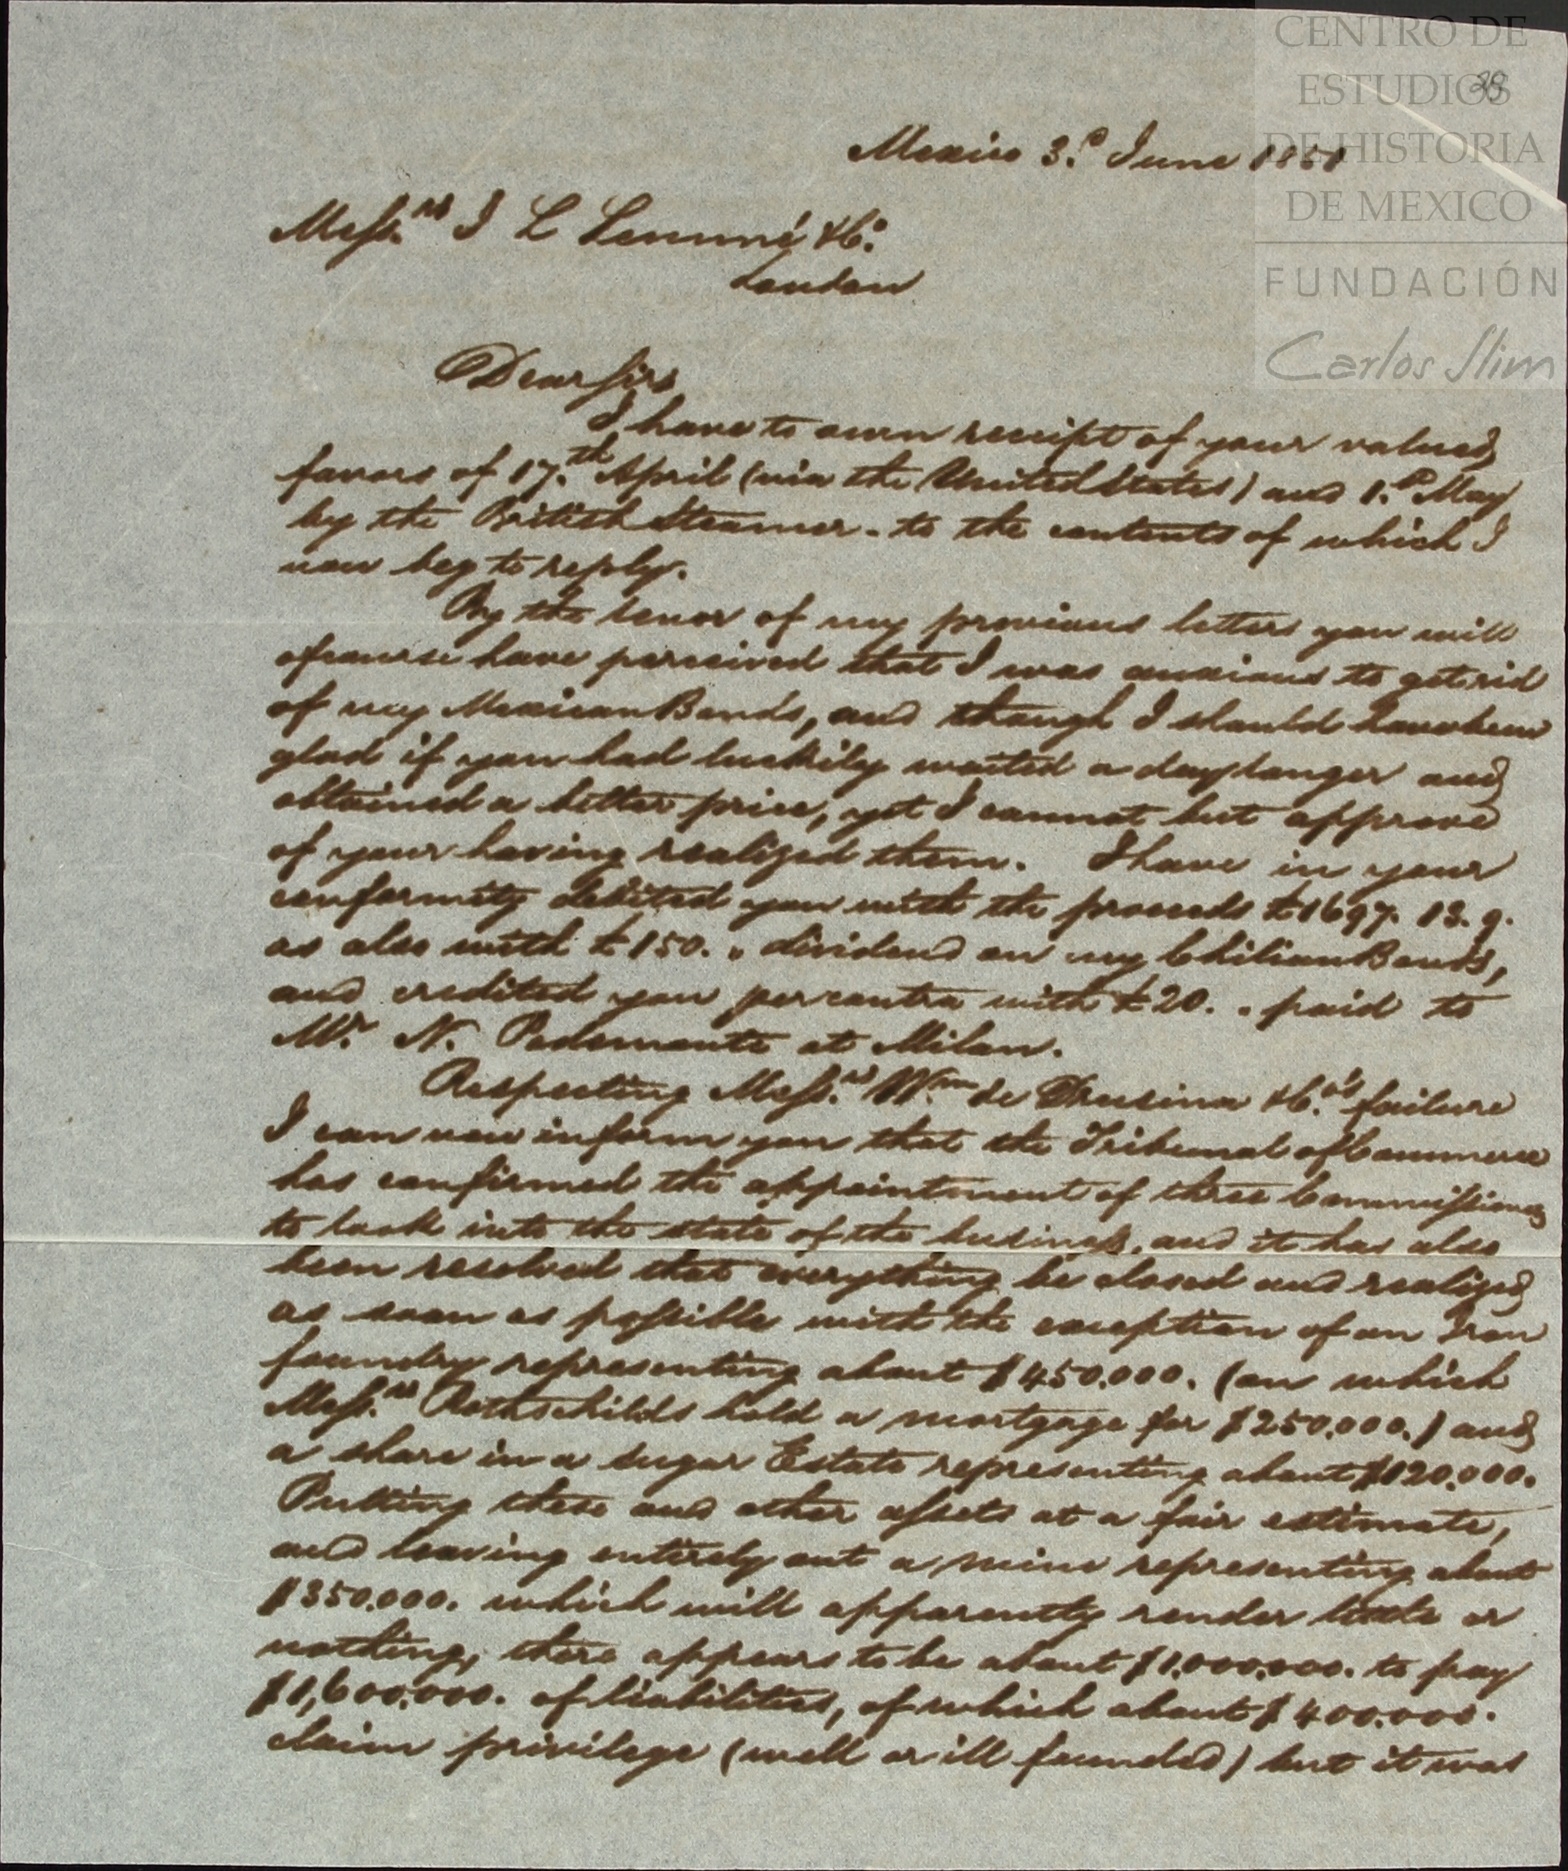 CENTRO DE
ESTUDIOS
DE HISTORIA
DE MEXICO
FUNDACIÓN
Carlos Slim
39
Mexico 3.d June 1851
Mess.rs I L Lemmé & Co.
London
Dear sirs
I have to own receipt of your valued
favors of 17.th April (via the United States) and 1.st May
by the British Steamer - to the contents of which I
now beg to reply.
By the tenor of my previous letters you will
of course have perceived that I was anxious to get rid
of my Mexican Bonds, and though I should have been
glad if you had luckily waited a day longer and
obtained a better price, yet I cannot but approve
of your having realized them. I have in your
conformity debited you with the proceeds £1697. 13. 9.
as also with £150. " dividend on my Chilian Bonds,
and credited you per contra with £20. " paid to
Mr. N. Pedemonte at Milan.
Respecting Mess.rs Wm. de Drusina & Co.'s failure
I can now inform you that the Tribunal of Commerce
has confirmed the appointment of three Commissioners
to look into the state of the business, and it has also
been resolved that everything be closed and realized
as soon as possible with the exception of an Iron
foundry representing about $450.000. (on which
Mess.rs Rothschilds hold a mortgage for $250.000.) and
a share in a sugar Estate representing about $120.000.
Putting these and other assets at a fair estimate,
and leaving entirely out a mine representing about
$350.000. which will apparently render little or
nothing, there appears to be about $1.000.000. to pay
$1,600.000. of liabilities, of which about $400.000.
claim privilege (well or ill founded) but it was